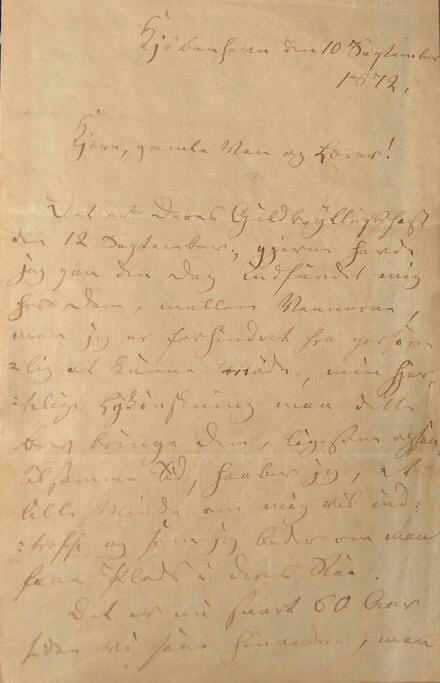 Kjöbenhavn den 10 September
1872.
Kjære, gamle Ven og Lærer!
Det er Deres Guldbryllupsfest
den 12 September, gjerne havde
jeg paa den Dag indfundet mig
hos Dem, mellem Vennerne,
men jeg er forhindret fra person
lig at kunne møde, min hjer-
telige Lykönskning maa dette
Brev bringe Dem, ligesom ogsaa
tilsamme Tid, haaber jeg, et
lille Minde om mig vil ind-
træffe og som jeg beder om maa
faae Plads i Deres Stue.
Det er nu snart 60 Aar
siden vi saae hinanden, men